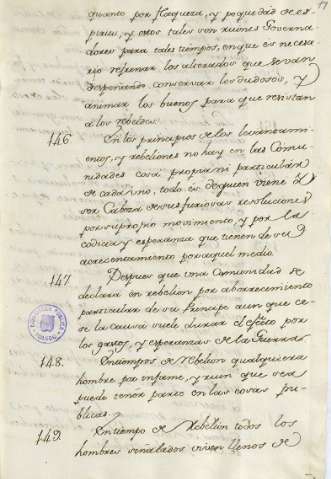 quanto por flaqueza, y poquedad de es-
piritu, y estos tales son ruines Governa-
dores para tales tiempos, en que es necesa-
rio refrenar los alterados que se van
despeñando, conservar los dudosos, y
animar los buenos para que resistan
a los rebeldes.
146 En los principios de los levantami-
entos, y rebeliones no hay en las Comu-
nidades cosa propia ni particular
de cada uno, todo es de quien viene á
ser Cabeza de sus furiosas resoluciones
por su propio movimiento, y por la
codicia y esperanza que tienen de su
acrecentamiento por aquel medio.
147. Despues que una Comunidad se
declara en rebelion por aborrecimiento
particular de su Principe aunque ce-
se la causa suele durar el efecto por
los gastos, y esperanzas de la Guerra.
148. En tiempos de rebelion qualquiera
hombre por infame, y ruin que sea
puede tener parte en las cosas pu-
blicas.
149. En tiempo de Rebelion todos los
hombres señalados viven llenos de